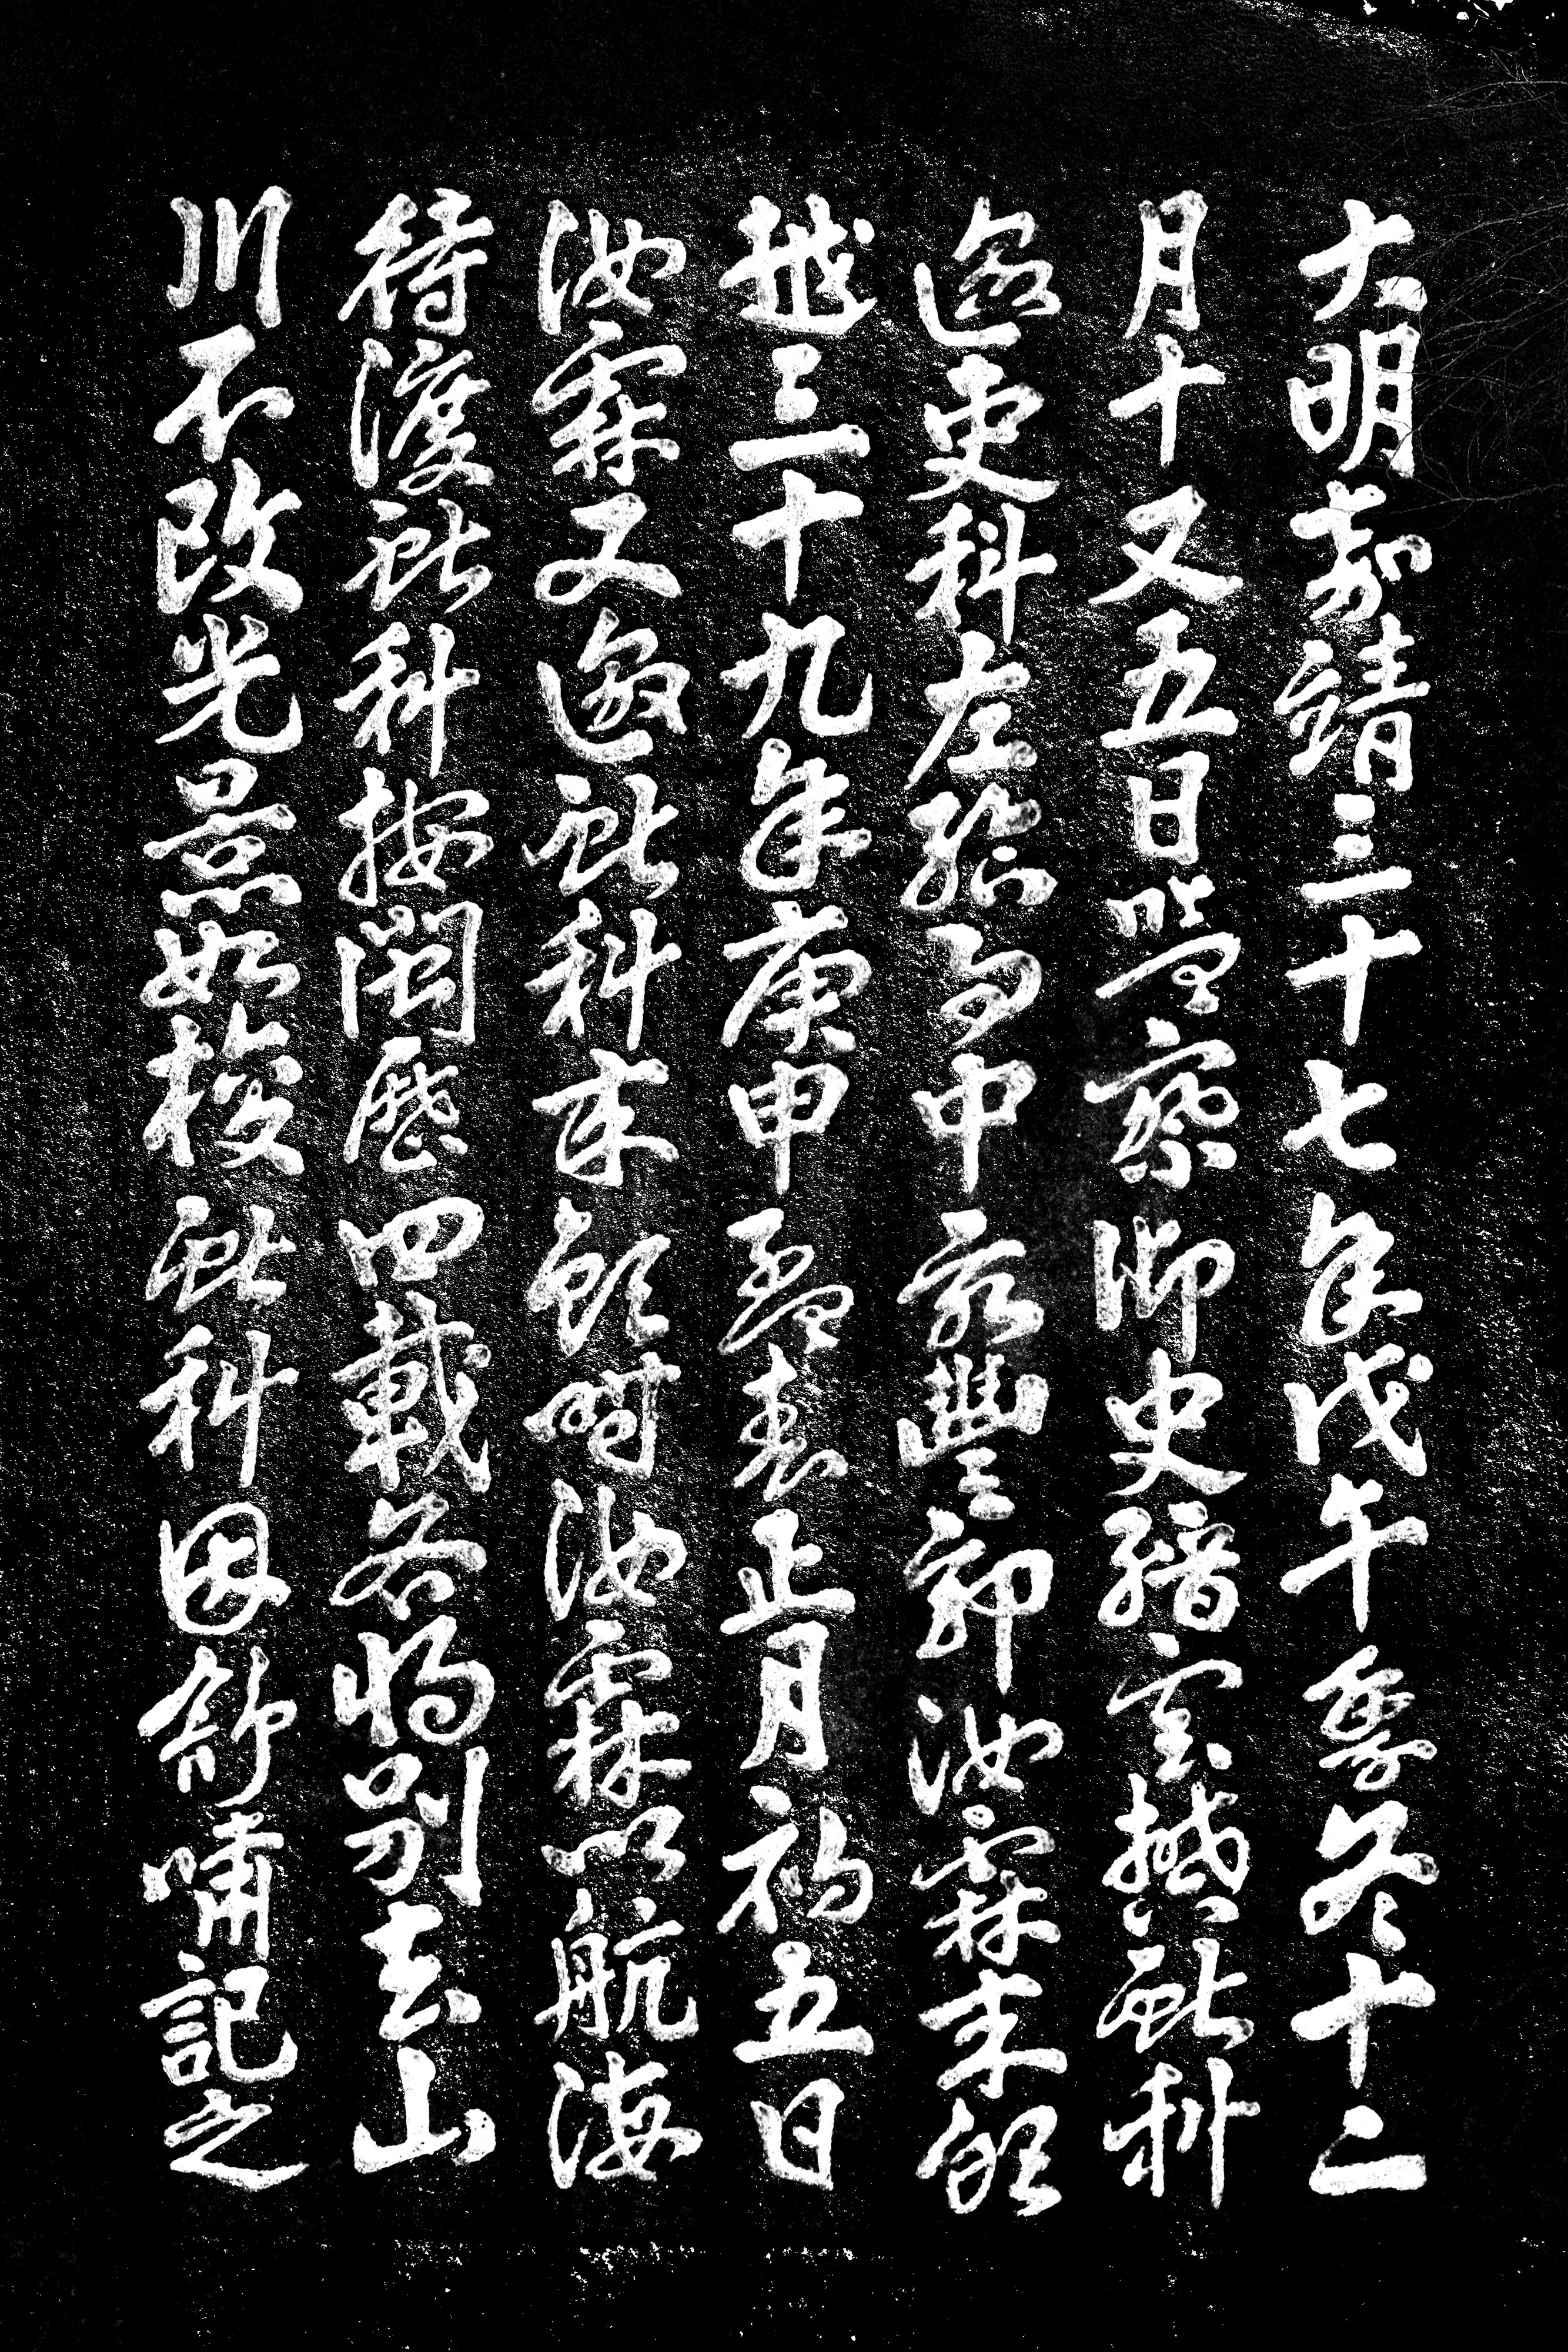 大明嘉靖三十七年戊午季冬十二
月十又五日監察御史縉雲樊獻科
邀吏科左給事中永豐郭汝霖來觀
越三十九年庚申孟春正月初五日
汝霖又邀獻科來觀時汝霖以航海
待渡獻科按閩歷四載各將別去山
川不改光景如梭獻科因舒嘯記之